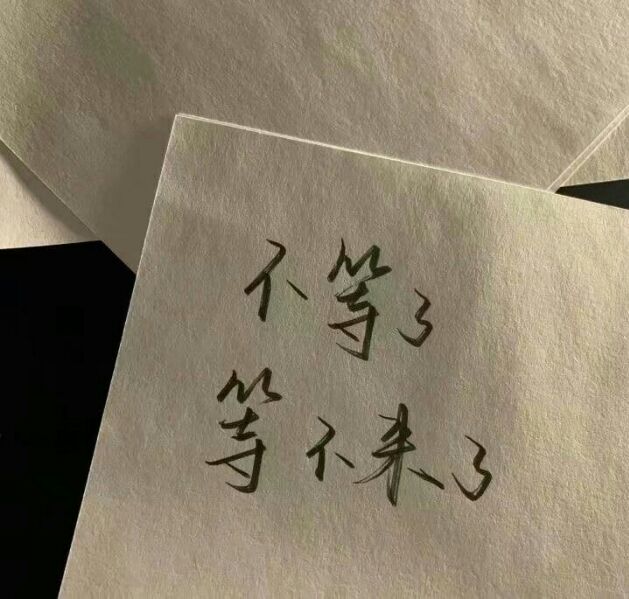 不等了
等不来了